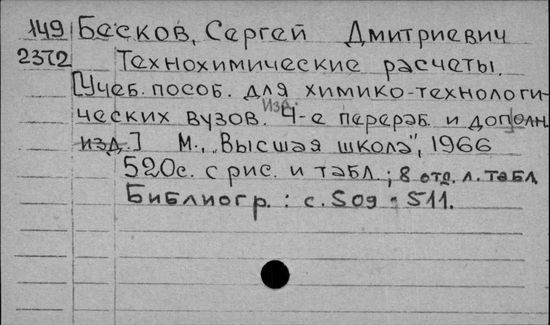 149 Бесков, Сергей Дмитриевич
2372 Технохимические расчеты.
[Учеб. пособ. для химико-технологи-
ческих вузов. Изд. 4-е перераб. и дополн.
изд.] М., "Высшая школа", 1966
520с. с рис. и табл.; 8 отд. л. табл.
Библиогр.: с. 509-511.